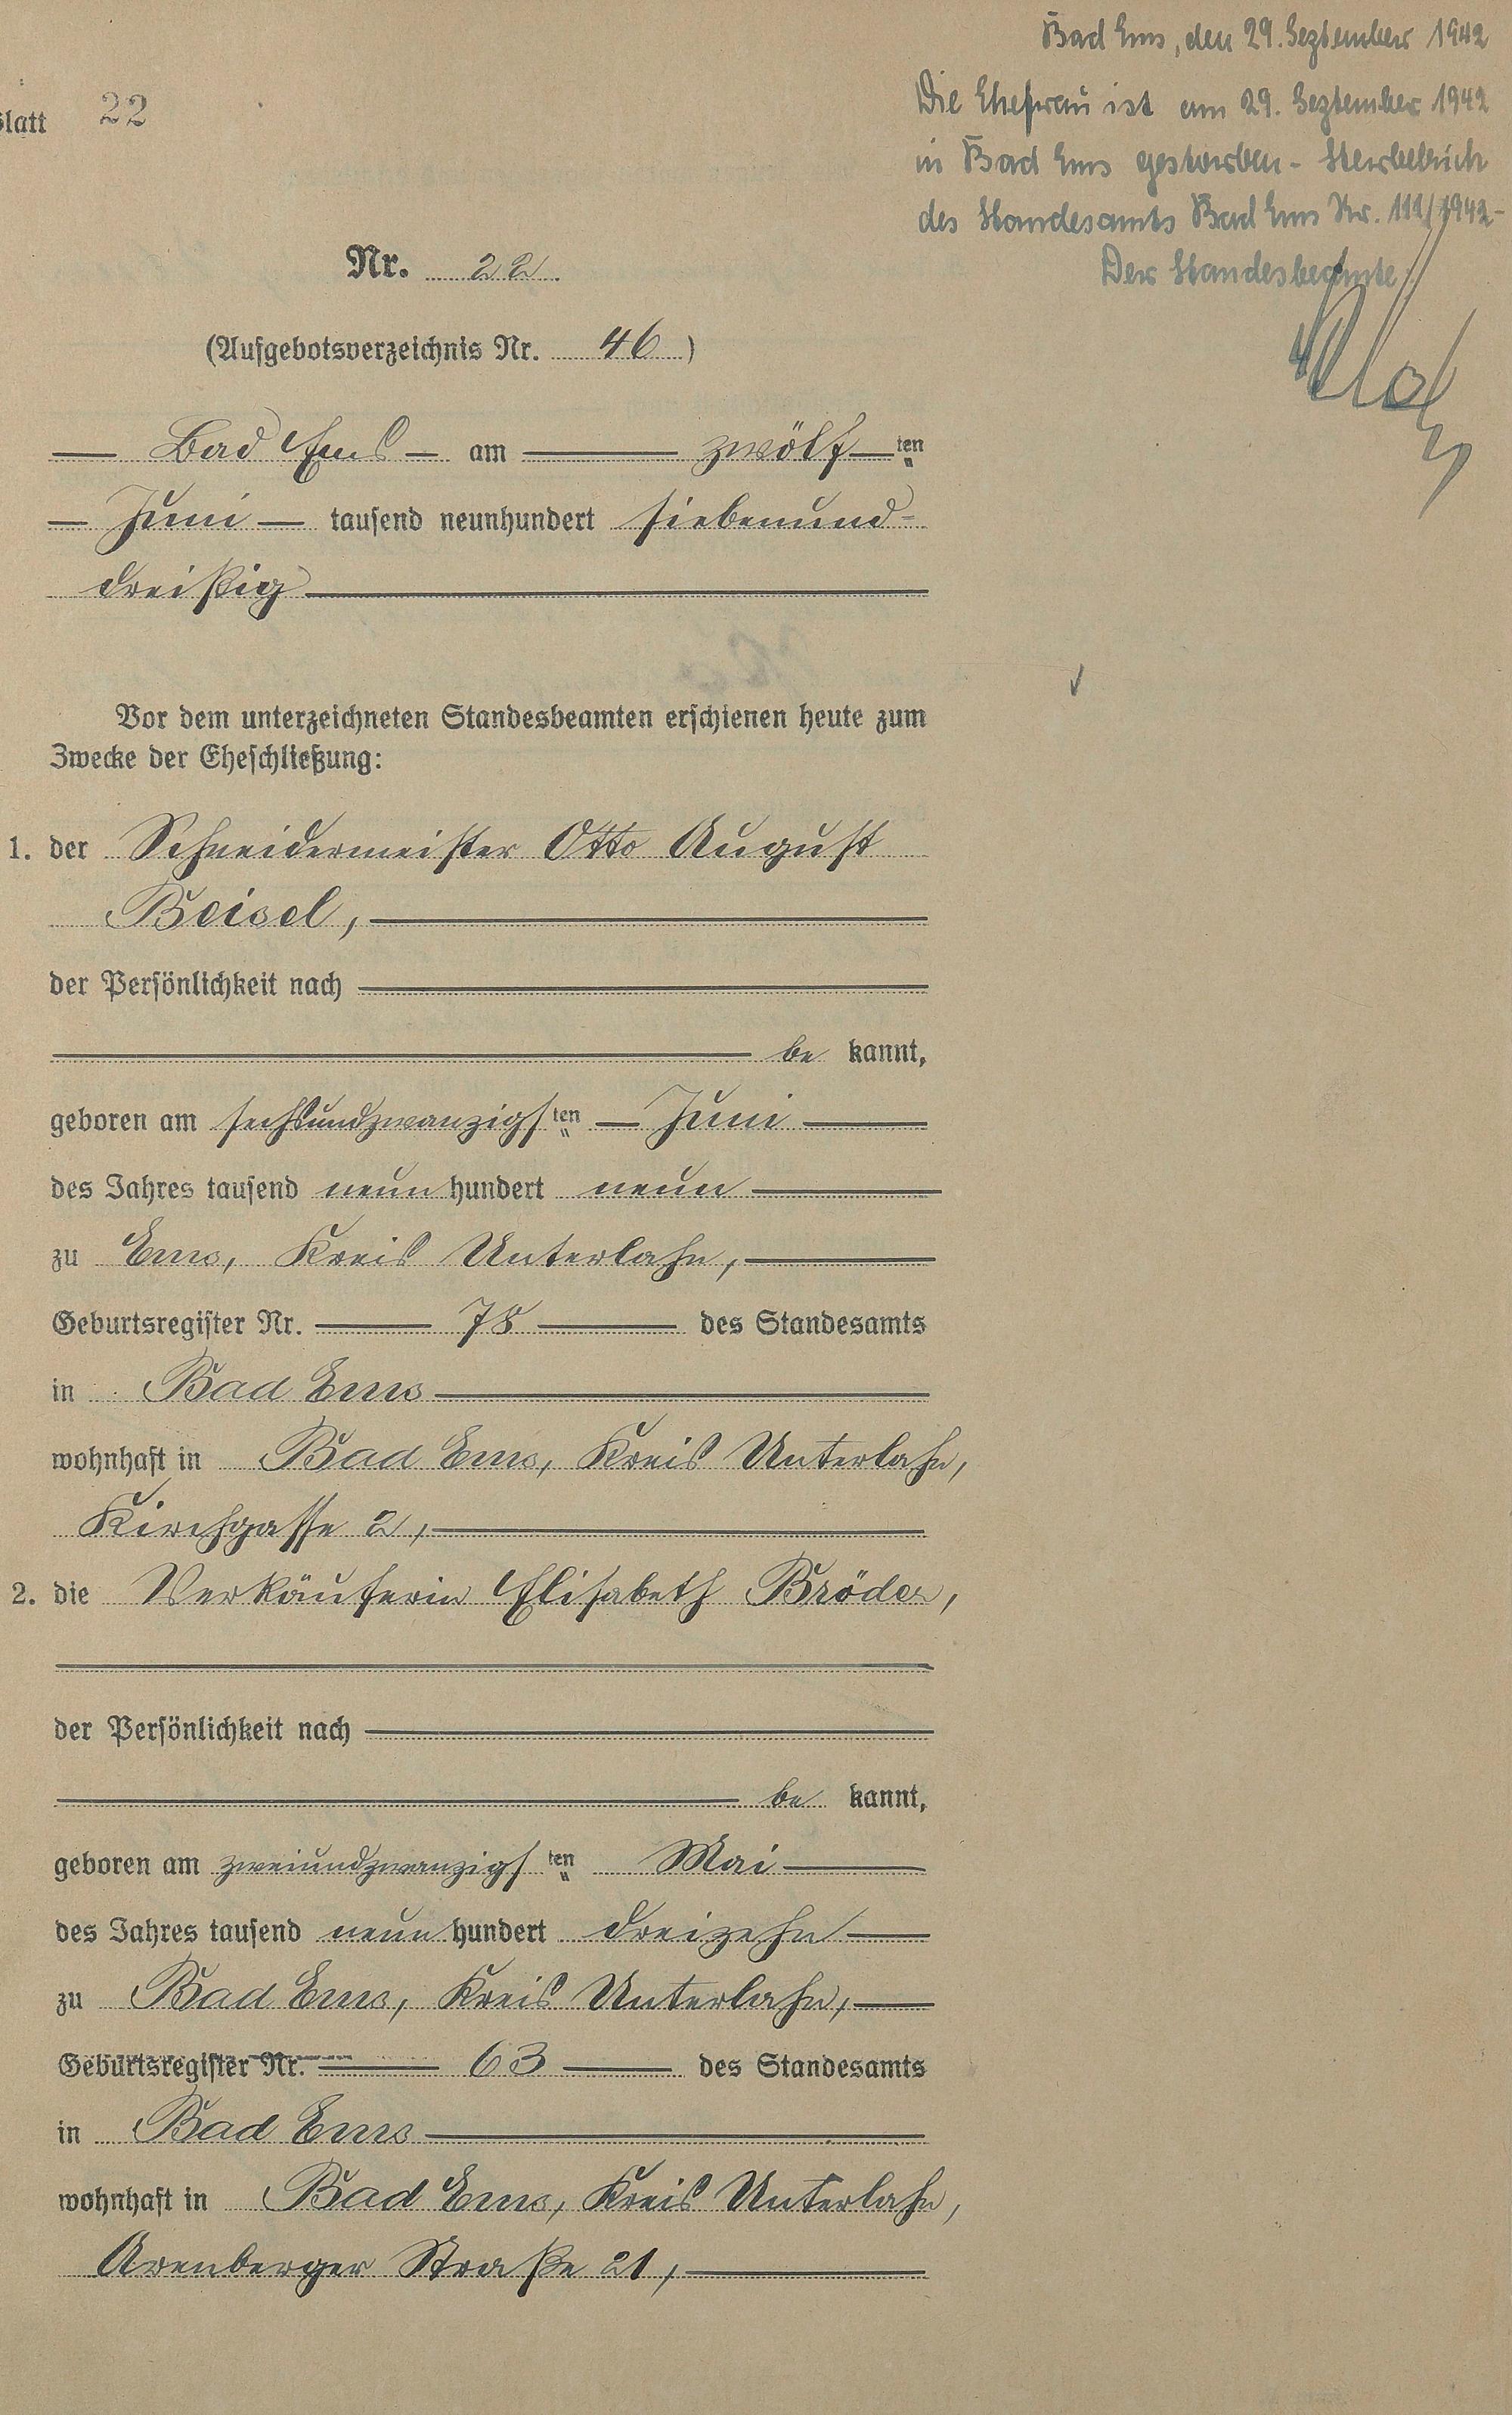 Bad Ems, den 29. September 1942
Die Ehefrau ist am 29. September 1942
in Bad Ems gestorben - Sterbebuch
des Standesamts Bad Ems Nr. 111/1942-
Der Standesbeamte:
Blatt 22
Nr. 22
(Aufgebotsverzeichnis Nr. 46)
Bad Ems am zwölften
Juni tausend neunhundert siebenund-
dreißig
Vor dem unterzeichneten Standesbeamten erschienen heute zum
Zwecke der Eheschließung:
1. der Schneidermeister Otto August
Beisel,
der Persönlichkeit nach
be kannt,
geboren am sechsundzwanzigsten Juni
des Jahres tausend neun hundert neun
zu Ems, Kreis Unterlahn,
Geburtsregister Nr. 78 des Standesamts
in Bad Ems
wohnhaft in Bad Ems, Kreis Unterlahn,
Kirchgasse 2,
2. die Verkäuferin Elisabeth Bröder,
der Persönlichkeit nach
be kannt,
geboren am zweiundzwanzigsten Mai
des Jahres tausend neun hundert dreizehn
zu Bad Ems, Kreis Unterlahn,
Geburtsregister Nr. 63 des Standesamts
in Bad Ems
wohnhaft in Bad Ems, Kreis Unterlahn,
Arenberger Straße 21,